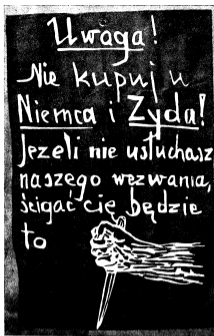 Uwaga!
Nie kupuj u
Niemca i Żyda!
Jeżeli nie usłuchasz
naszego wezwania,
ścigać cię będzie
to